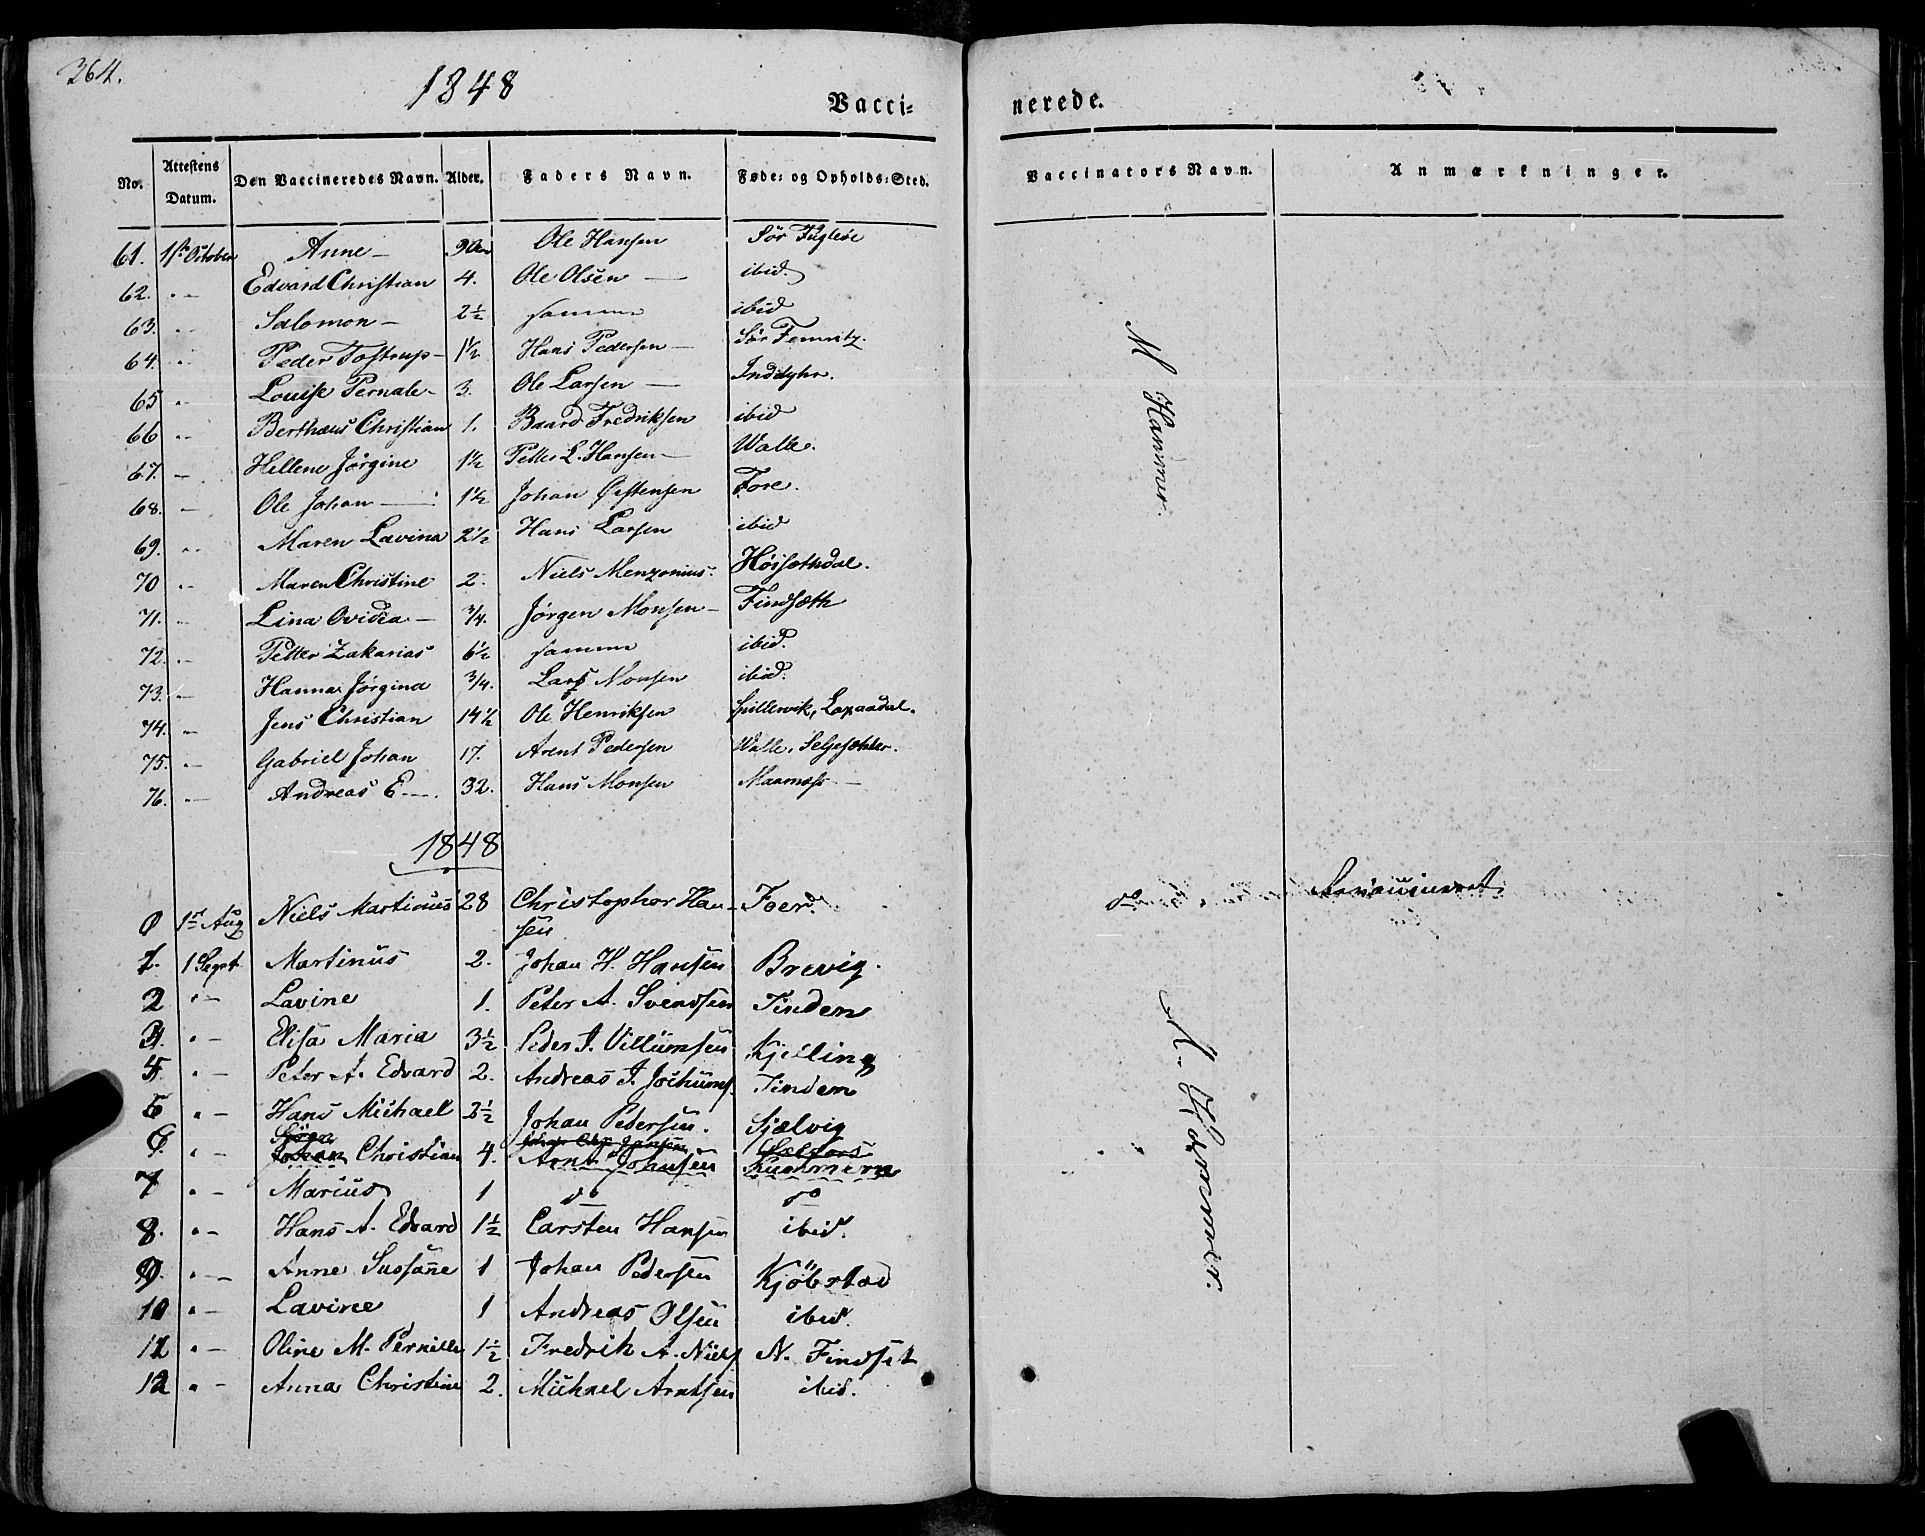 364.
1848
Vacci-
nerede.
No. Attestens Datum. Den Vaccineredes Navn. Alder. Faders Navn. Føde- og Opholds-Sted. Vaccinators Navn. Anmærkninger.
61. 1ste October Anne — 9 Ole Hansen Sör Fugleöe
62. " — Edvard Christian 4. Ole Olsen — ibid.
63. " — Salomon — 2½ samme ibid
64. " Peder Tostrup — 1½ Hans Pedersen — Sör
65 " — Louise Pernale — 3. Ole Larsen — Inddyhr.
66 " — Berthæus Christian 1. Baard Fredriksen ibid
67. — Hellene Jørgine 1½ Petter L. Hansen — Walle.
68. — Ole Johan — 1½ Johan Østensen Fore.
69. " — Maren Lavina 2½ Hans Larsen ibid
70 " — Maren Christine 2. Niels Menzonius. Høisæthdal.
71. " — Lina Ovidea — 3/4. Jørgen Monsen — Findsæth
72. " — Petter Zakarias 6½ samme ibid.
73. " — Hanna Jørgina 3/4. Lars Monsen ibid.
74. — Jens Christian 14½ Ole Henriksen Spillervik,
75. " — Gabriel Johan 17. Arent Pedersen Walle,
76. " — Andreas E —. 32. Hans Monsen —
M Hansner.
1848
0 1st Aug Niels Martinus 28 Christopher Han-
sen Foer. do Revaccineret
1. 1 Sept. Martinus 2. Johan H. Hansen Brevig.
2 " — Lavine 1. Peter A. Svendsen Tinden
3. " — Elisa Maria 3½ Peder J. Villumsen Kjelling
4. " — Peter A. Edvard 2. Andreas J. Jochums. Tinden
5 " — Hans Michael 2½ Johan Pedersen. Sjælvig
6. " — Johan Christian 4. Arnt Johnsen
7 " — Marius 1 do do
8. " — Hans A. Edvard 1½ Carsten Hansen ibid.
9. " — Anne Sussane 1 Johan Pedersen Kjöbstad
10 " — Lavine 1 Andreas Olsen ibid.
11 " — Oline M. Pernille 1½ Fredrik A. Niels N. Findset
12 " — Anna Christine 2. Michael Arntsen ibid.